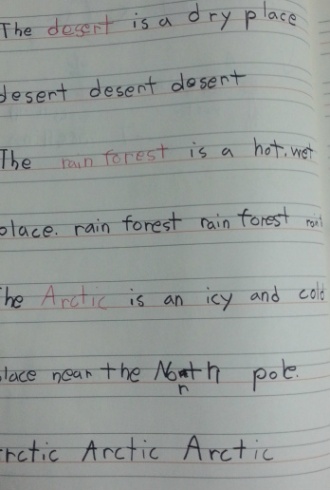 The desert is a dry place
desert desert desert
The rain forest is a hot, wet
place. rain forest rain forest
The Arctic is an icy and cold
place near the North pole.
Arctic Arctic Arctic